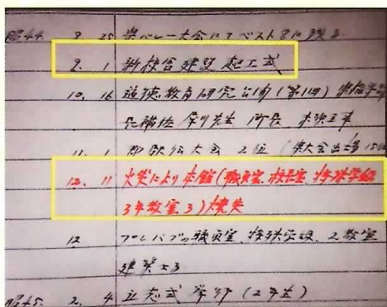 昭44 8 25 県バレー大会にてベスト8に残る
9. 1 新校舎建設起工式
10. 16 道徳教育研究公開(第1回)
11. 1 郡駅伝大会 2位
12. 11 火災により本館(職員室、校長室、特殊学級
3年教室3)焼失
12 プレハブの職員室、特殊学級、2教室
建築する
昭45 2. 4 立志式挙行(2年生)